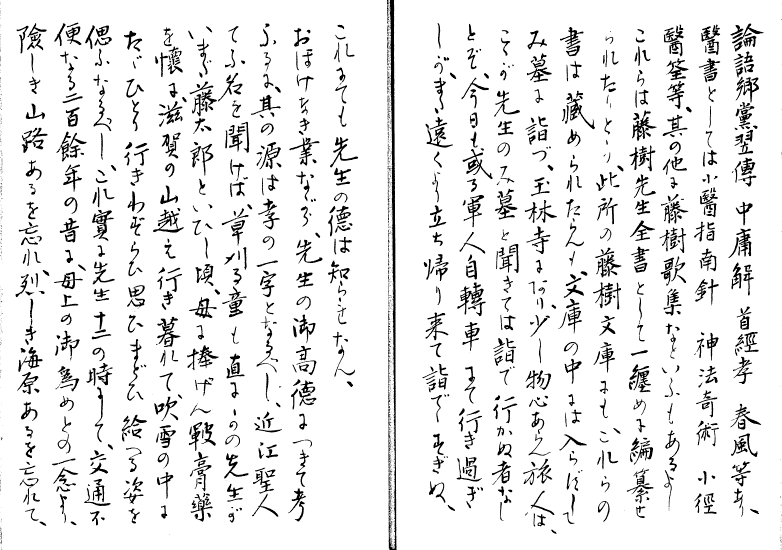 論語郷黨翌傳 中庸解 首經孝 春風等あり、
醫書としては小醫指南針 神法奇術 小徑
醫筌等、其の他に藤樹歌集などいふもあるよし
これらは藤樹先生全書として一纏めに編纂せ
られたりとか、此所の藤樹文庫にも、これらの
書は藏められたらんも、文庫の中には入らずして
み墓に詣づ、玉林寺にあり、少し物心あらん旅人は、
こゝが先生のみ墓と聞きては詣で行かぬ者なし
とぞ、今日も或る軍人自轉車にて行き過ぎ
しが、また遠くより立ち帰り来て詣ですぎぬ、
これにても先生の德は知らせなん、
おほけなき業ながら、先生の御高德につきて考
ふるに、其の源は孝の一字となるべし、近江聖人
てふ名を聞けば、草刈る童も直にかの先生が
いまだ藤太郎といひし頃、母に捧げん皸膏藥
を懷に滋賀の山越え行き暮れて、吹雪の中に
たゞひとり行きわずらひ思ひまどひ給へる姿を
偲ふなるべし、これ實に先生十二の時にして、交通不
便なる二百餘年の昔に、母上の御爲めとの一念より、
險しき山路あるを忘れ、烈しき海原あるを忘れて、